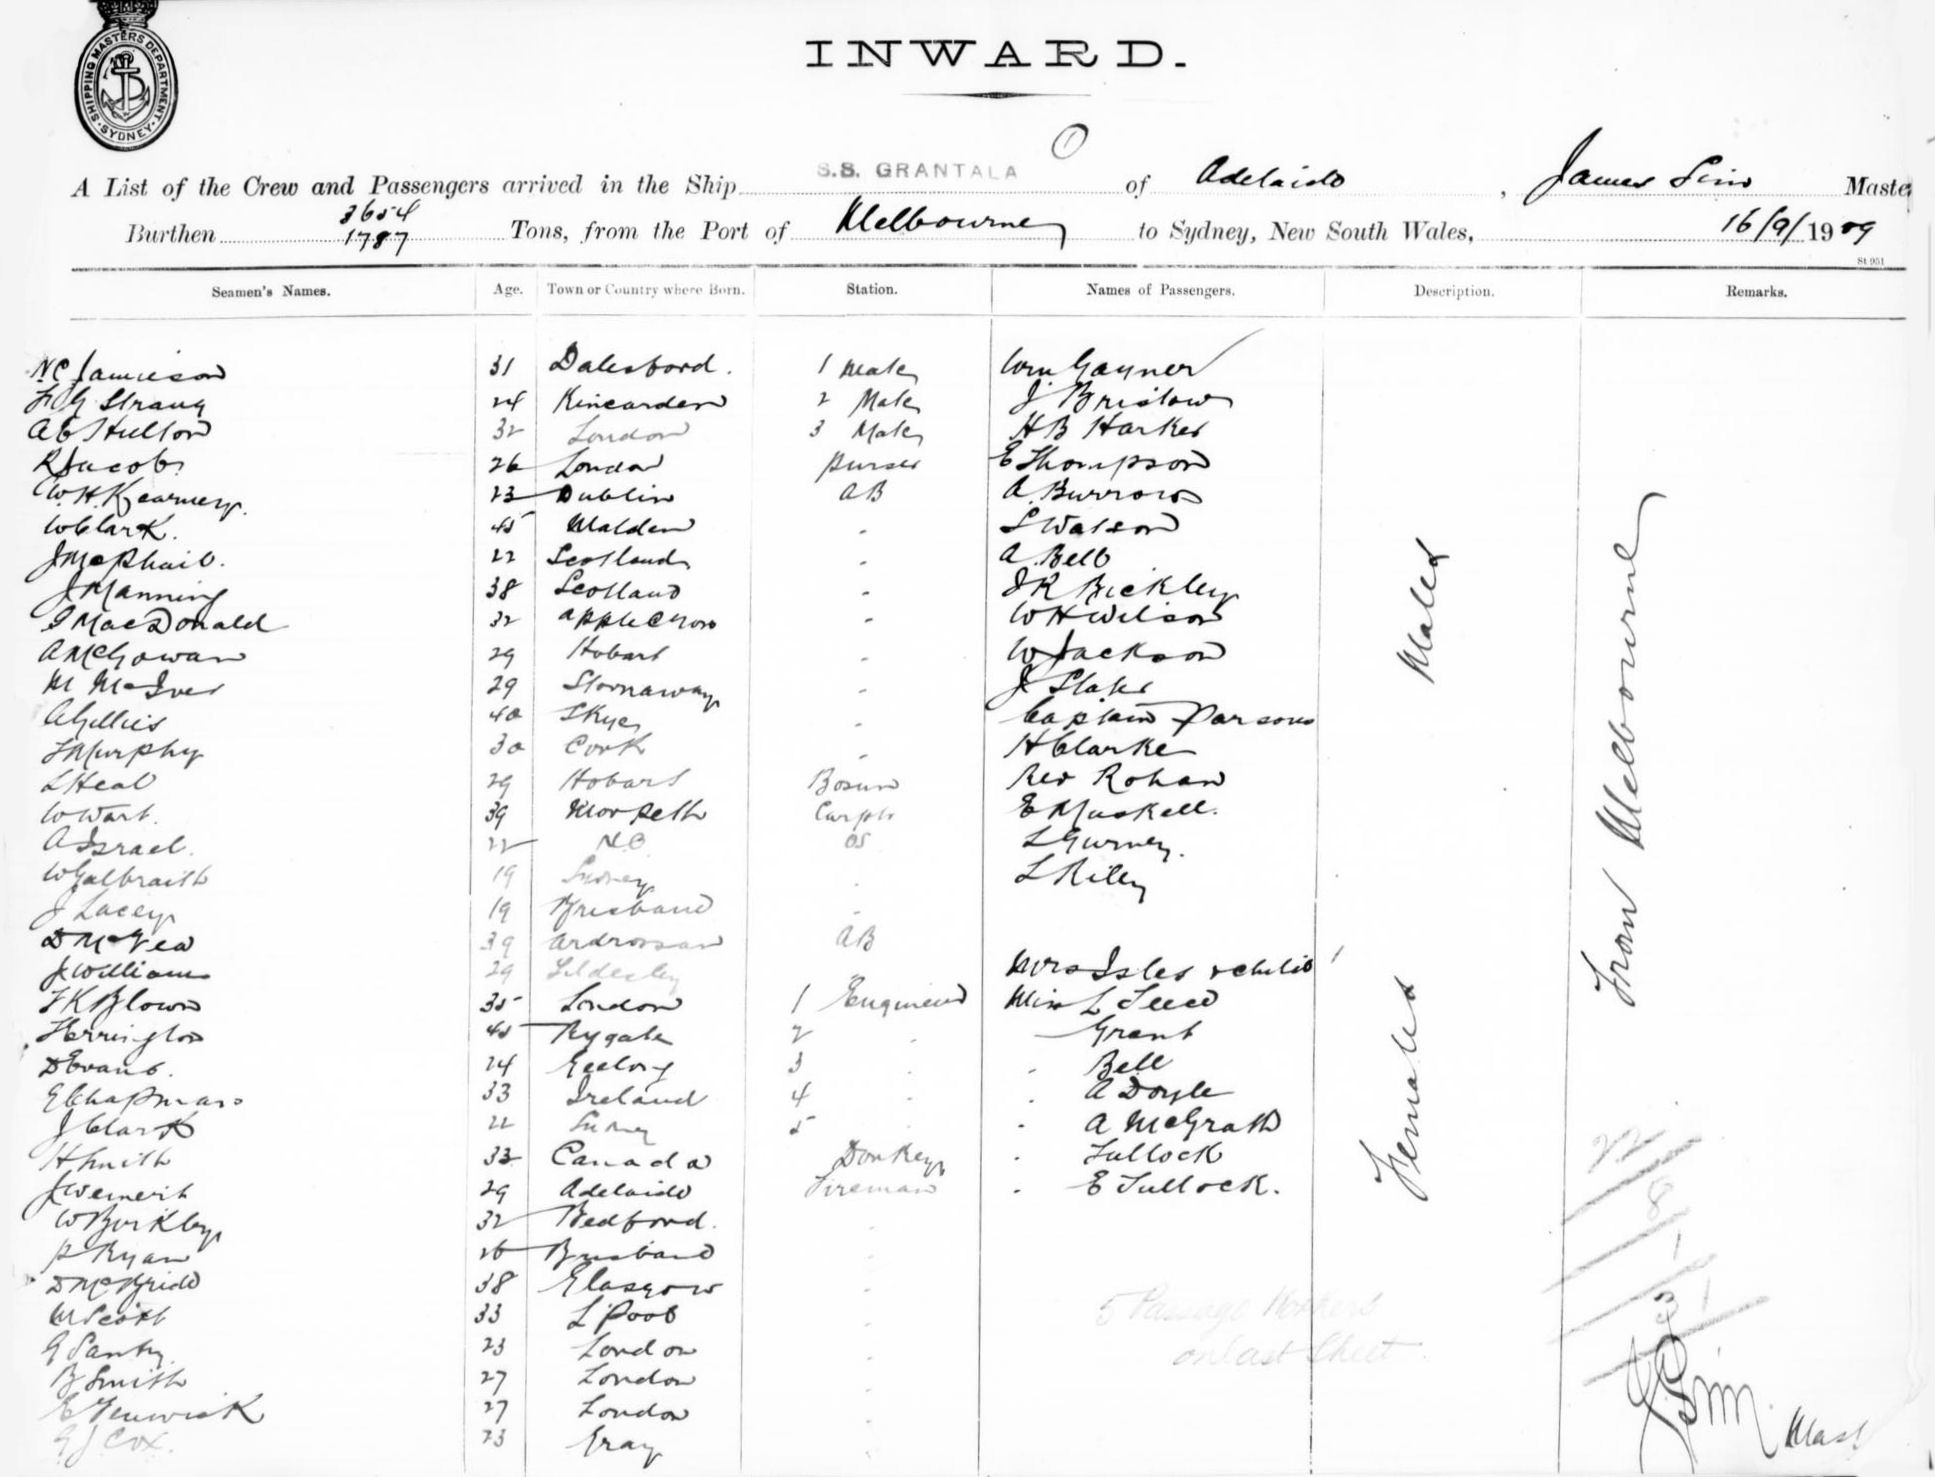 SHIPPING MASTERS DEPARTMENT SYDNEY
INWARD.
1
A List of the Crew and Passengers arrived in the Ship S.S. GRANTALA of Adelaide, James Sim Master
Burthen 3654 1787 Tons, from the Port of Melbourne to Sydney, New South Wales, 16/9/1909
St 951
Seamen's Names. Age. Town or Country where Born. Station. Names of Passengers. Description. Remarks.
N C Jamieson 31 1 Mate Wm Gayner
F G Strang 24 Kincarden 2 Mate J Bristow
A E Hutton 32 London 3 Mate H B Harker
R Jacobs 26 London Purser E Thompson
W. H. Kearney 23 Dublin AB A Burrows
W Clark. 45 Malden - S Watson
J McPhail. 22 Scotland - A Bell
J Manning 38 Scotland - J R Bickley
MacDonald 32 Applecross - W H Wilson
A McGowan 29 Hobart - W Jackson
M McIver 29 Stornaway - J Slater
A Gillies 40 Skye - Captain Parsons
F Murphy 30 Cork - H Clarke
L Heal 29 Hobart Bosun Rev Rohan
W Wart. 39 Morpeth Carptr E Maskell.
A Israel. 22 N.C. OS L Gurney.
W Galbraith 19 Sydney - L Riley
J Lacey 19 Brisbane -
D McVea 39 Ardrossan AB
J Williams 29 Mrs Isles & child
F K Blown 35 London 1 Engineer Miss L Leed
Herrington 45 Rygate 2 - Grant
D Evans. 24 Geelong 3 - Bell
E Chapman 33 Ireland 4 - A Doyle
J Clark 22 Sydney 5 - A McGrath
H Smith 33 Canada Donkey - Tullock
J Wemert 29 Adelaide Fireman - E Tullock.
W Buckley 32 Bedford. -
P Ryan 26 Brisbane -
D McBride 38 Glasgow -
M Scott 33 L'Pool -
G Santry 23 London -
B Smith 27 London -
E Fenwick 27 London -
G J Cox. 23 Gray -
Males
Females
From Melbourne
22
8
1
1
3
5 Passage Workers
on last Sheet
J Sim Mast